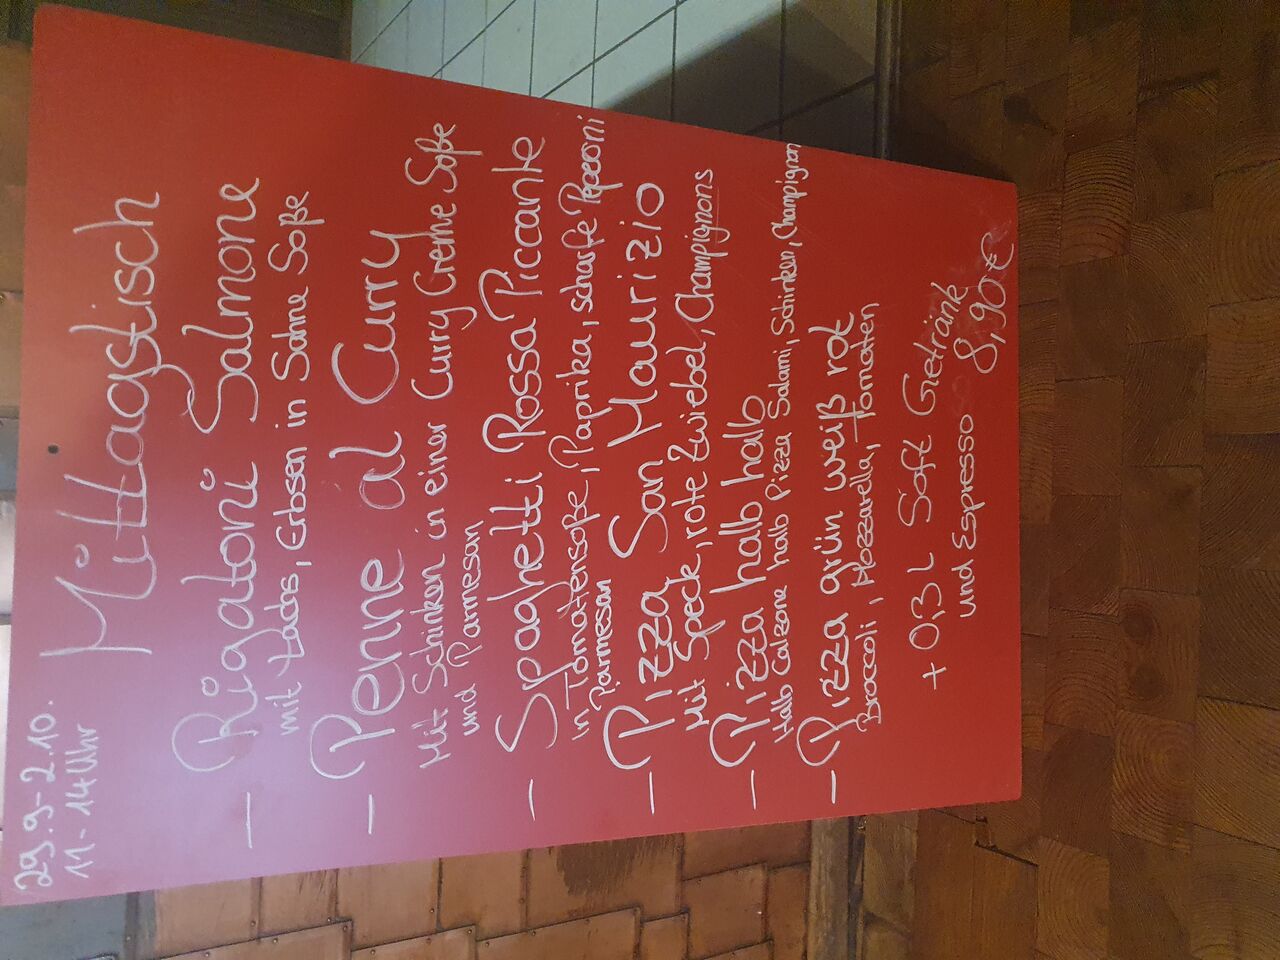 29.9-2.10.
11-14Uhr
Mittagstisch
- Rigatoni Salmone
mit Lachs, Erbsen in Sahne Soße
- Penne al Curry
Mit Schinken in einer Curry Creme Soße
und Parmesan
- Spaghetti Rossa Piccante
in Tomatensoße, Paprika, scharfe Peperoni
Parmesan
- Pizza San Maurizio
Mit Speck, rote Zwiebel, Champignons
- Pizza halb halb
Halb Calzone halb Pizza Salami, Schinken, Champignon
- Pizza grün weiß rot
Broccoli, Mozzarella, Tomaten
+ 0,3L Soft Getränk
und Espresso 8,90€